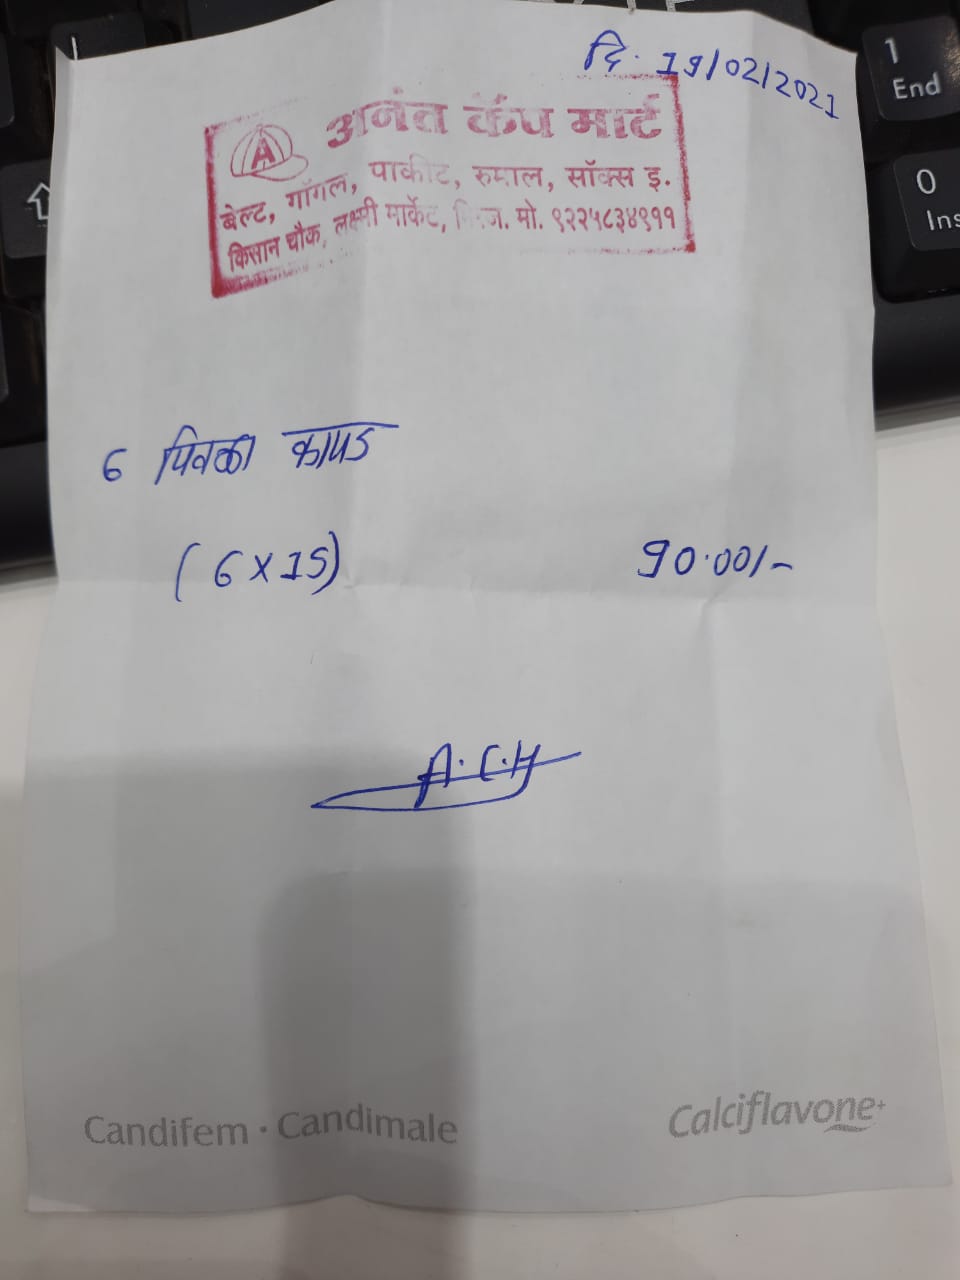 दि. 19/02/2021
अनंत कॅप मार्ट
A
बेल्ट, गॉगल, पाकीट, रुमाल, सॉक्स इ.
किसान चौक, लक्ष्मी मार्केट, मिरज. मो. ९२२५८३४९११
6 पिवळा कापड
(6 X 15) 90.00/-
A.C.H
Candifem • Candimale
Calciflavone+
1
End
0
Ins